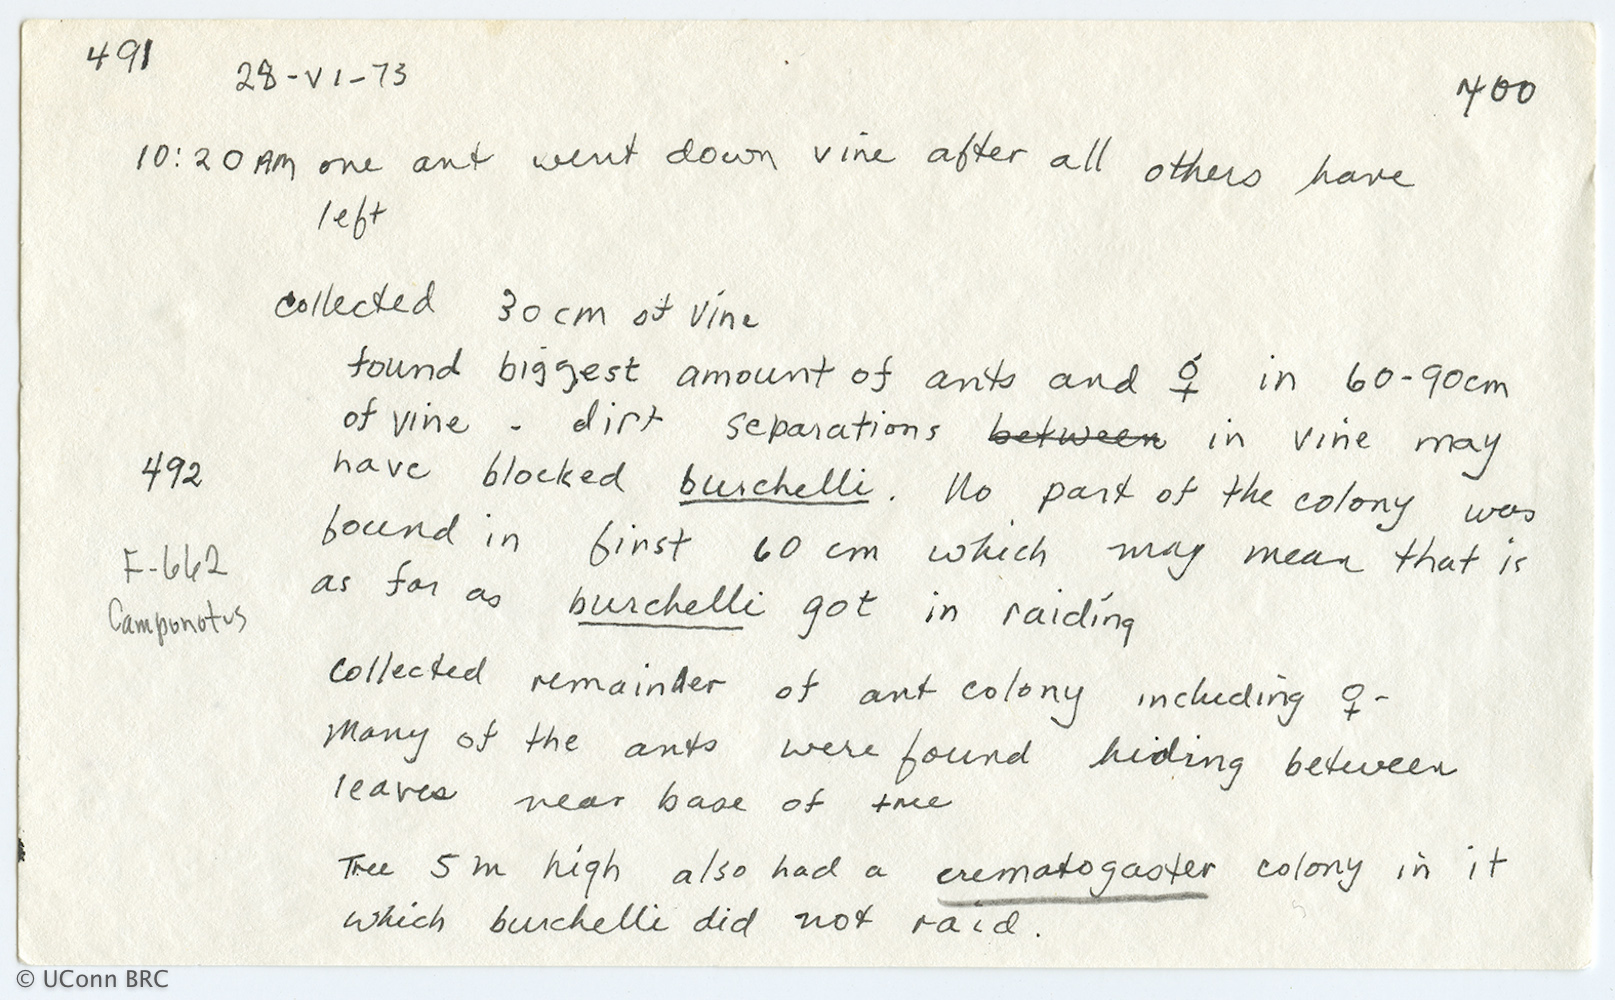 491
28-VI-73
400
10:20 AM one ant went down vine after all others have
left
collected 30 cm of vine
found biggest amount of ants and ⚥ in 60-90cm
of vine - dirt separations between in vine may
492
have blocked burchelli. No part of the colony was
found in first 60 cm which may mean that is
F-662
as far as burchelli got in raiding
Camponotus
collected remainder of ant colony including ♀-
Many of the ants were found hiding between
leaves near base of tree
Tree 5 m high also had a crematogaster colony in it
which burchelli did not raid.
© UConn BRC